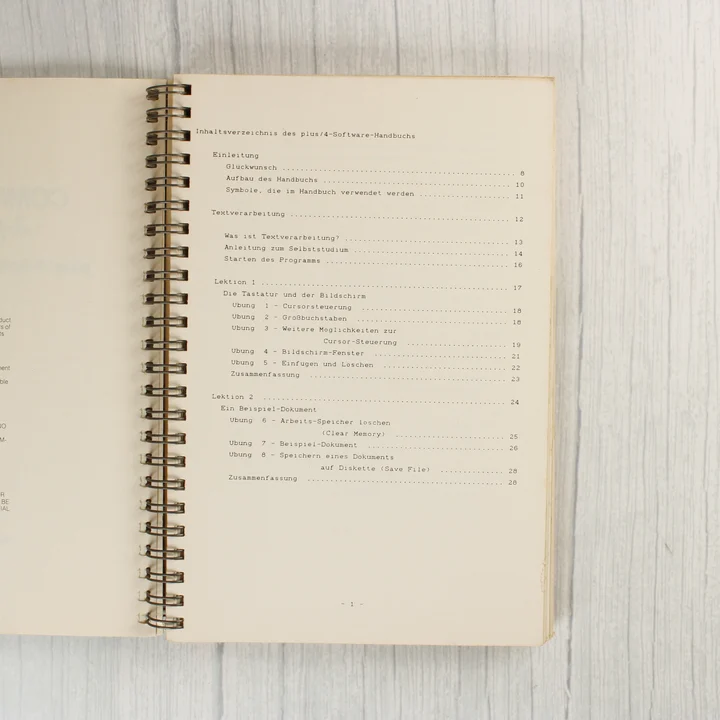 duct
rs of
ts
ment
ble
BO
M-
R
BE
IAL
Inhaltsverzeichnis des plus/4-Software-Handbuchs
Einleitung
Glückwunsch ........................................ 8
Aufbau des Handbuchs ........................................ 10
Symbole, die im Handbuch verwendet werden .................... 11
Textverarbeitung ........................................ 12
Was ist Textverarbeitung? ........................................ 13
Anleitung zum Selbststudium ........................................ 14
Starten des Programms ........................................ 16
Lektion 1 ........................................ 17
Die Tastatur und der Bildschirm
Übung 1 - Cursorsteuerung ........................................ 18
Übung 2 - Großbuchstaben ........................................ 18
Übung 3 - Weitere Möglichkeiten zur
Cursor-Steuerung .................... 19
Übung 4 - Bildschirm-Fenster .............................. 21
Übung 5 - Einfügen und Löschen .............................. 22
Zusammenfassung ........................................ 23
Lektion 2 ........................................ 24
Ein Beispiel-Dokument
Übung 6 - Arbeits-Speicher löschen
(Clear Memory) .................... 25
Übung 7 - Beispiel-Dokument .............................. 26
Übung 8 - Speichern eines Dokuments
auf Diskette (Save File) ............ 28
Zusammenfassung ........................................ 28
- 1 -